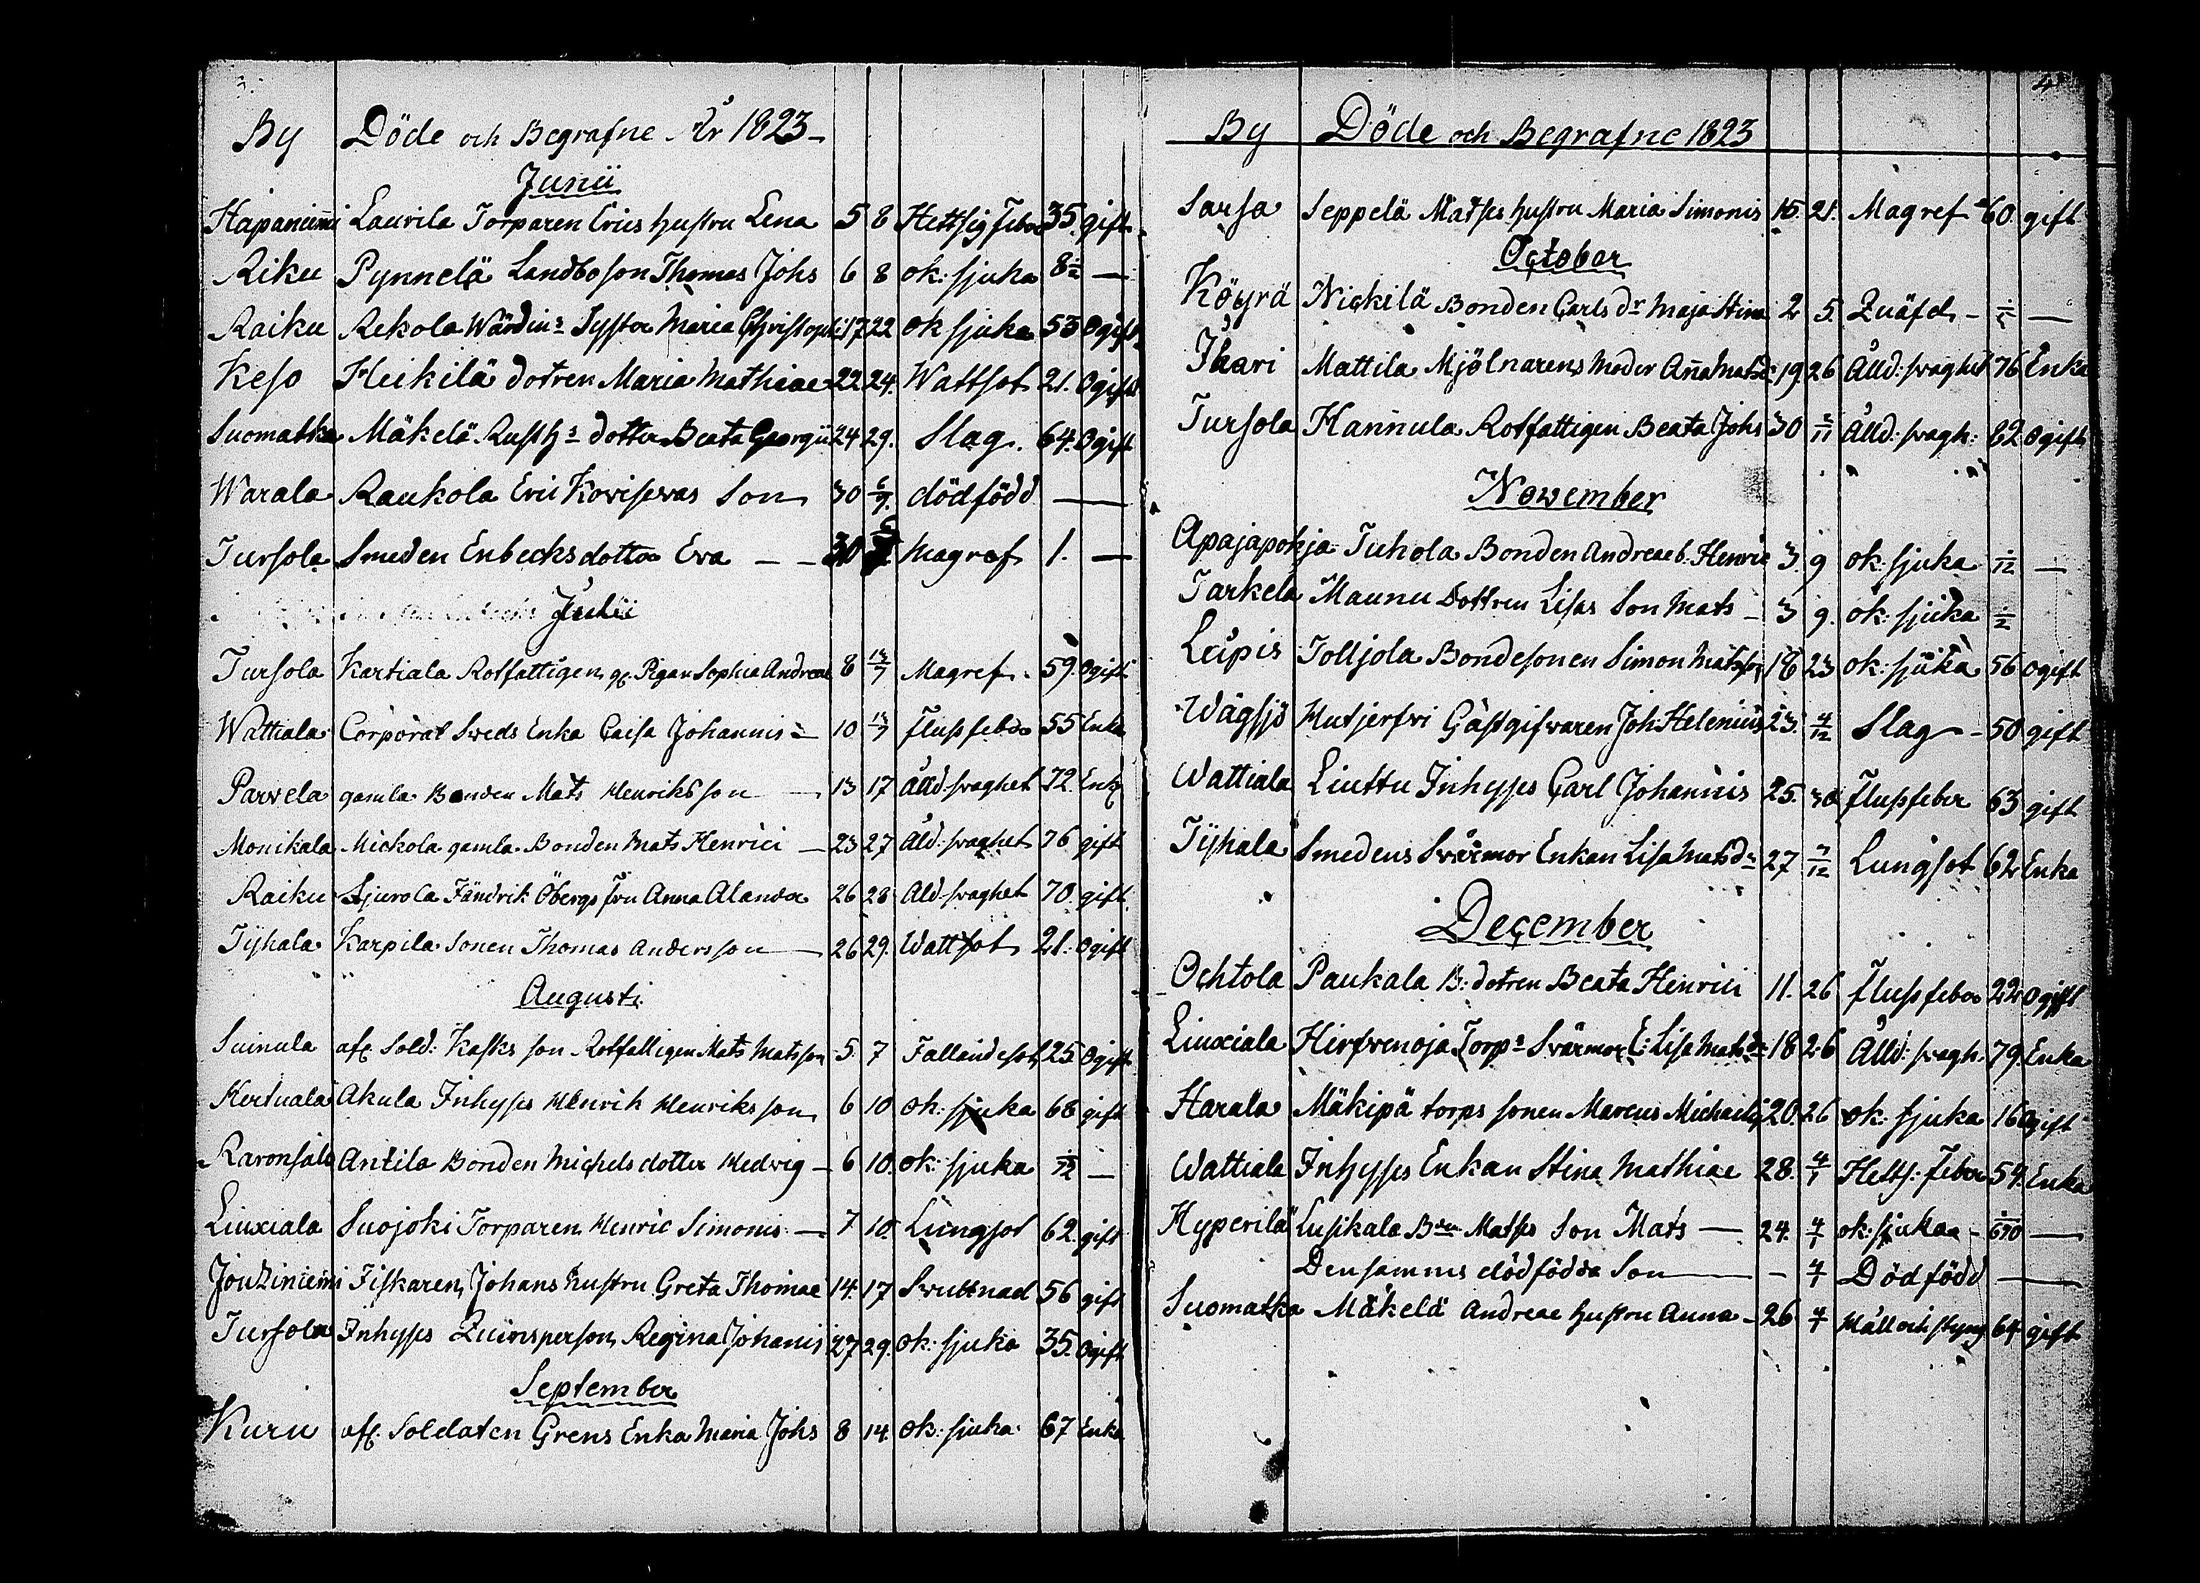 By Döde och Begrafne År 1823
Junii
Hapaniemi Laurila Torparen Erics hustru Lena 5 8 Hettsig Feber 35 gift
Riku Pynnelä Landbo son Thomas Johs 6 8 ok: sjuka —
Raiku Rekola Wärdin⁵ Syster Maria 17 22 ok sjuka 53 Ogift
Keso Heikilä dotren Maria Mathiae 22 24. Wattsot 21. Ogift
Suomatka Mäkelä Rusth⁵ dotter Beata Georgii 24 29. Slag. 64. Ogift
Warala Raukola Eric Son 30 dödfödd —
Tursola Smeden Enbecks dotter Eva — — 30 Magref 1. —
Julii
Tursola Kartiala Rotfattigen Pigan Sophia Andreae 8 13/7 Magref. 59. Ogift
Wattiala Corporal Sveds Enka Caisa Johannis 10 13/7 Flussfeber 55 Enka
Parvela gamla Bonden Mats Henriksson — 13 17 Ålld. svaghet 72. Enk
Monikala Mickola gamla Bonden Mats Henrici — 23 27 Åld. svaghet 76 gift
Raiku Fändrik Öbergs Fru Anna Alander 26 28 Åld svaghet 70 gift
Tyhala Karpila Sonen Thomas Andersson — 26 29. Wattsot 21. Ogift
Augusti
Suinula afl Sold: Kasks son Rotfattigen Mats Matsson 5. 7 Fallandesot 25 Ogift
Kertuala Akula Inhyses Henrik Henriksson 6 10 ok: sjuka 68 gift
Antila Bonden Michels dotter Hedvig — 6 10. ok: sjuka —
Liuxiala Suojoki Torparen Henric Simonis — 7 10. Lungsot 62. gift
Fiskaren Johans hustru Greta Thomae 14. 17 Svullnad 56 gift
Tursola Inhyses Quinsperson Regina Johanis 27 29. ok: sjuka 35. Ogift
September
Kuru afl. Soldaten Grens Enka Maria Johs 8 14 ok: sjuka 67 Enka
By Döde och Begrafne 1823
Sarsa Seppelä Matses hustru Maria Simonis 15. 21. Magref 60. gift
October
Köyrä Nickilä Bonden Carls dr Maja Stina 2 5. Quäfd — —
Ihari Mattila Mjölnarens Moder Anna Matsdr 19 26 Ålld: svaghet 76 Enka
Tursola Hannula Rotfattigen Beata Johs 30 2/11 Ålld: svagh: 82 Ogift
November
Apajapohja Tuhola Bonden Andreae b. Henric 3. 9 ok: sjuka —
Tarkela Maunu Dottren Lisas Son Mats — 3 9. ok: sjuka
Lupis Tolljola Bondesonen Simon Matsson 18 23 ok: sjuka 56 Ogift
Wågsjö Gästgifvaren Joh: Helenius 23. 4/12 Slag — 50 gift
Wattiala Liuttu Inhyses Carl Johannis 25. 30. Flussfeber 63 gift
Tyhala Smedens Svärmor Enkan Lisa Matsdr 27 7/12 Lungsot 62 Enka
December
Ochtola Paukala B: dotren Beata Henrici 11. 26 Flussfeber 22 Ogift
Liuxiala Hirfvenoja Torp⁵ Svärmor E: Lisa Matsdr 18 26 Ålld: svagh. 79. Enka
Harala Mäkipä torps sonen Marcus Michaelis 20. 26 ok: sjuka 16 Ogift
Wattiala Inhyses Enkan Stina Mathiae 28. 4/1 Hetts: Feber 54. Enka
Hyperilä Lusikala Matses Son Mats — 24. 4/1 ok: sjuka — —
Densammes dödfödda Son — — 4/1 Död född —
Suomatka Mäkelä Andreae hustru Anna — 26 4/1 Håll och styng 64 gift